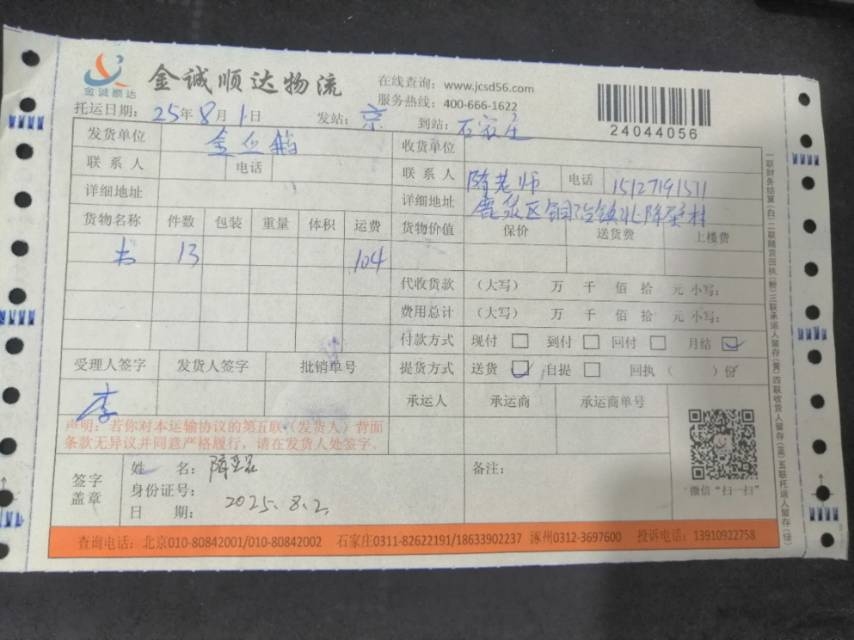 金诚顺达
金诚顺达物流
在线查询：www.jcsd56.com
服务热线：400-666-1622
24044056
托运日期：25年8月1日 发站：京 到站：石家庄
发货单位 收货单位
联系人 电话 联系人 隋老师 电话 15127191511
详细地址 详细地址 鹿泉区铜冶镇北降壁村
货物名称 件数 包装 重量 体积 运费 货物价值 保价 送货费 上楼费
书 13 104
代收货款 （大写） 万 千 佰 拾 元 小写：
费用总计 （大写） 万 千 佰 拾 元 小写：
付款方式 现付 到付 回付 月结
受理人签字 发货人签字 批销单号 提货方式 送货 自提 回执（ ）份
李
承运人 承运商 承运商单号
声明：若你对本运输协议的第五联（发货人）背面
条款无异议并同意严格履行，请在发货人处签字。
签字
盖章
姓 名：
身份证号：
日 期： 2025.8.2
备注：
微信“扫一扫”
一联财务结算（白）二联随货回执（粉）三联承运人留存（黄）四联收货人留存（蓝）五联托运人留存（绿）
查询电话：北京010-80842001/010-80842002 石家庄0311-82622191/18633902237 涿州0312-3697600 投诉电话：13910922758